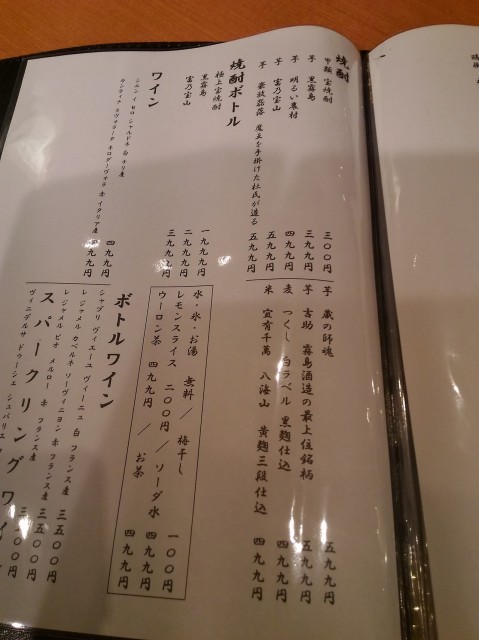 焼酎
甲類 宝焼酎 三〇〇円
芋 黒霧島 三九九円
芋 明るい農村 四九九円
芋 富乃宝山 五九九円
芋 豪放磊落 魔王を手掛けた杜氏が造る 五九九円
芋 蔵の師魂 五九九円
芋 吉助 霧島酒造の最上位銘柄 五九九円
麦 つくし 白ラベル 黒麹仕込 四九九円
米 宜有千萬 八海山 黄麹三段仕込 四九九円
焼酎ボトル
極上宝焼酎 一九九九円
黒霧島 二九九九円
富乃宝山 三九九九円
水・氷・お湯 無料 / 梅干し 一〇〇円
レモンスライス 二〇〇円 / ソーダ水 四九九円
ウーロン茶 四九九円 / お茶 四九九円
ワイン
シエン イ ゼロ シャルドネ 白 チリ産
カンティナ エヴォラーテ ネロダーヴォラ 赤 イタリア産 四九九円
ボトルワイン
シャブリ ヴィエーユ ヴィーニュ 白 フランス産
レ ジャメル カベルネ ソーヴィニヨン 赤 フランス産 三五〇〇円
レ ジャメル ビオ メルロー 赤 フランス産
スパークリングワイ